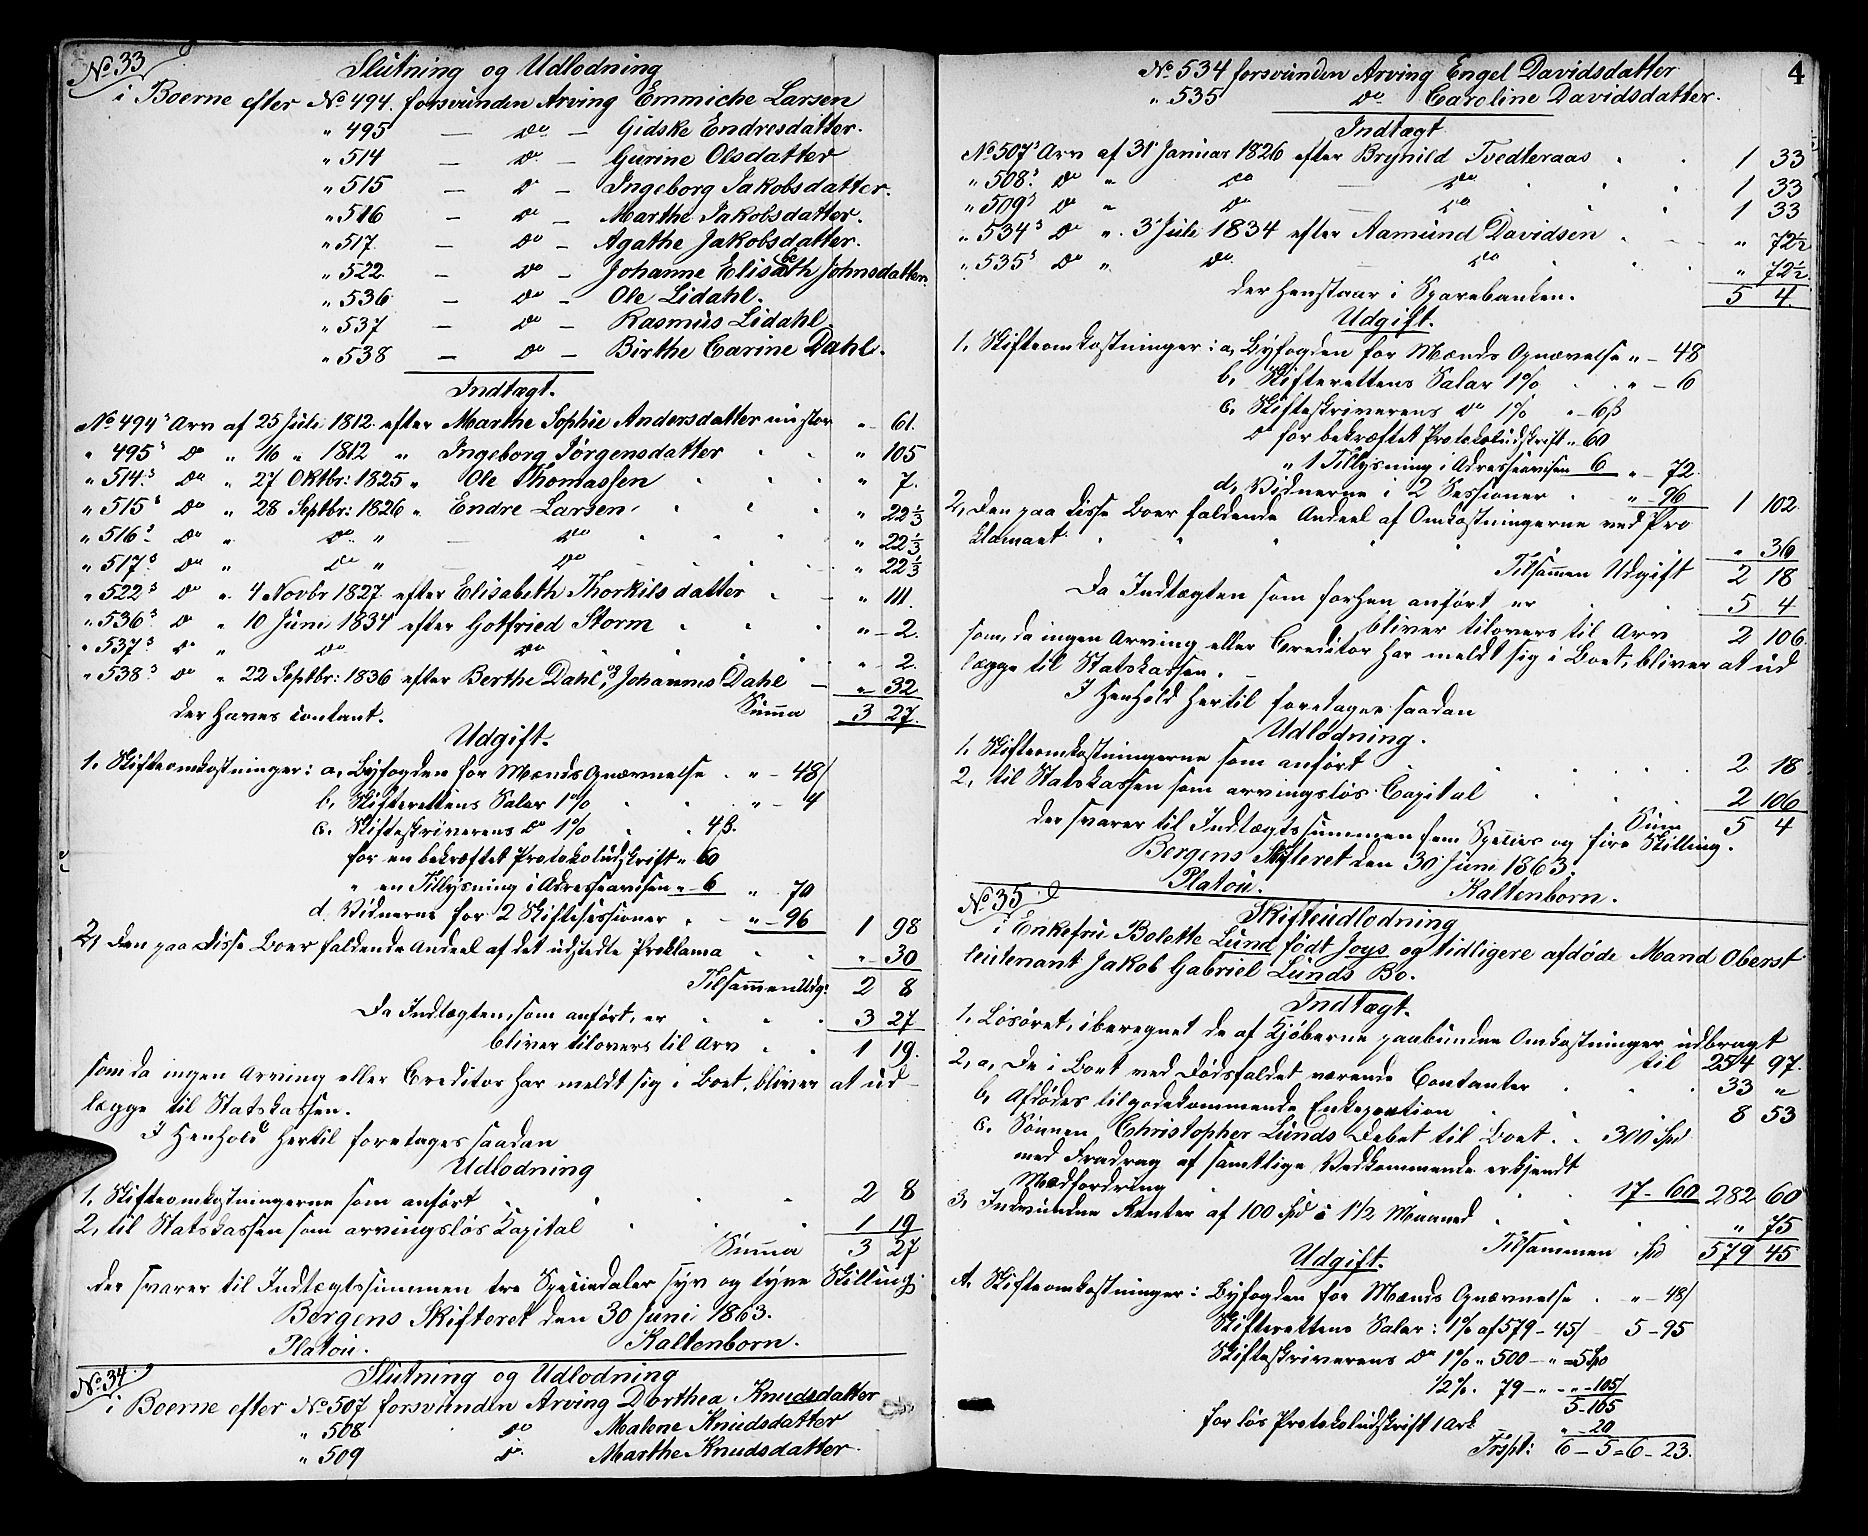 No 33
Slutning og Udlodning
i Boerne efter No 494. forsvunden Arving Emmiche Larsen
" 495 — do — Gidske Endresdatter.
" 514 — do — Gurine Olsdatter
" 515 — do — Ingeborg Jakobsdatter.
" 516 — do — Marthe Jakobsdatter.
" 517. — do — Agathe Jakobsdatter.
" 522. — do — Johanne Elisabeth Johnsdatter.
" 536 — do — Ole Lidahl.
" 537 — do — Rasmus Lidahl.
" 538 — do — Birthe Carine Dahl.
Indtægt.
No 494s Arv af 25 Juli 1812 efter Marthe Sophie Andersdatter " 61.
" 495s do " 16 " 1812 " Ingeborg Jørgensdatter " 105
" 514s do " 27 Oktbr: 1825 " Ole Thomassen " 7.
" 515s do " 28 Septbr: 1826 " Endre Larsen " 22 1/3
" 516s do " do " — do " 22 1/3
" 517s do " do " — do " 22 1/3
" 522s do " 4 Novbr 1827 efter Elisabeth Thorkilsdatter " 111.
" 536s do " 10 Juni 1834 efter Gotfried Storm " – 2.
" 537s do " do do " – 2.
" 538s do " 22 Septbr: 1836 efter Berthe Dahl og Johannes Dahl — " – 32
der haves contant. Summa 3 27.
Udgift.
1, Skifteomkostninger: a, Byfogden for Mænds Opnævnelse " – 48/
b, Skifterettens Salar 1% " – 4
c. Skifteskriverens do 1% " 4ß.
for en bekræftet Protokoludskrift " 60
" en Tillysning i Adresseavisen " – 6 " 70
d. Vidnerne for 2 Skiftesessioner " – 96 1 98
2, den paa disse Boer faldende Andeel af det udstedte Proklama " – 30
Tilsammen Udg: 2 8
Da Indtægten, som anført, er 3 27
bliver tilovers til Arv 1 19.
som da ingen Arving eller Creditor har meldt sig i Boet, bliver at ud-
lægge til Statskassen.
I Henhold hertil foretages saadan
Udlodning
1, Skifteomkostningerne som anført 2 8
2, til Statskassen som arvingsløs Kapital 1 19
Summa 3 27
der svarer til Indtægtssummen tre Speciedaler syv og tyve Skilling.
Bergens Skifteret den 30 Juni 1863.
Platou. Kaltenborn.
No 34.
Slutning og Udlodning
i Boerne efter No 507 forsvunden Arving Dorthea Knudsdatter
" 508 do Malene Knudsdatter
" 509 do Marthe Knudsdatter.
4
No 534 forsvunden Arving Engel Davidsdatter
" 535 do Caroline Davidsdatter.
Indtægt
No 507s Arv af 31 Januar 1826 efter Brynild Tvedteraas 1 33
" 508s do " do — do 1 33
" 509s do " do — do 1 33
" 534s do " 3 Juli 1834 efter Aamund Davidsen " 72 1/2
" 535s do " do do " 72 1/2
der henstaar i Sparebanken. 5 4
Udgift.
1, Skifteomkostninger: a, Byfogden for Mænds Opnævelse " – 48
b, Skifterettens Salar 1% " – 6
c. Skifteskriverens do 1% " – 6ß
do for bekræftet Protokoludskrift " 60
" 1 Tillysning i Adresseavisen 6 " – 72.
d, Vidnerne i 2 Sessioner " – 96 1 102
2, den paa disse Boer faldende Andeel af Omkostningerne ved Pro
klamaet " 36
Tilsammen Udgift 2 18
Da Indtægten som forhen anført er 5 4
bliver tilovers til Arv 2 106
som, da ingen Arving eller Creditor har meldt sig i Boet, bliver at ud
lægge til Statskassen.
I Henhold hertil foretages saadan
Udlodning.
1, Skifteomkostningerne som anført 2 18
2, til Statskassen som arvingsløs Capital 2 106
Sum 5 4
der svarer til Indtægtssummen fem Species og fire Skilling.
Bergens Skifteret den 30 Juni 1863.
Platou. Kaltenborn.
No 35.
Skifteudlodning
i Enkefru Bolette Lund født Joys og tidligere afdøde Mand Oberst
leutenant Jakob Gabriel Lunds Bo.
Indtægt.
1, Løsøret, iberegnet de af Kjøberne paabudne Omkostninger, udbragt
til 254 97.
2, a, De i Boet ved Dødsfaldet værende Contanter 33 "
b, Afdødes tilgodekommende Enkepention 8 53
c. Sønnen Christopher Lunds Debet til Boet 300 Spd
med Fradrag af samtlige Vedkommende erkjendt
Modfordring 17 – 60 282 60
3, Indvundne Renter af 100 Spd i 1 1/2 Maaned " 75
Tilsammen Spd 579 45
Udgift.
A. Skifteomkostninger: Byfogden for Mænds Opnævnelse " – 48/
Skifterettens Salar: 1% af 579 – 45/ 5 – 95
Skifteskriverens do 1% " 500 – " = 5 Spd
1/2%. 79 – " " – 105/
5 – 105
for løs Protokoludskrift 1 Ark " – 20
Trspt: 6 – 5 = 6 – 23.